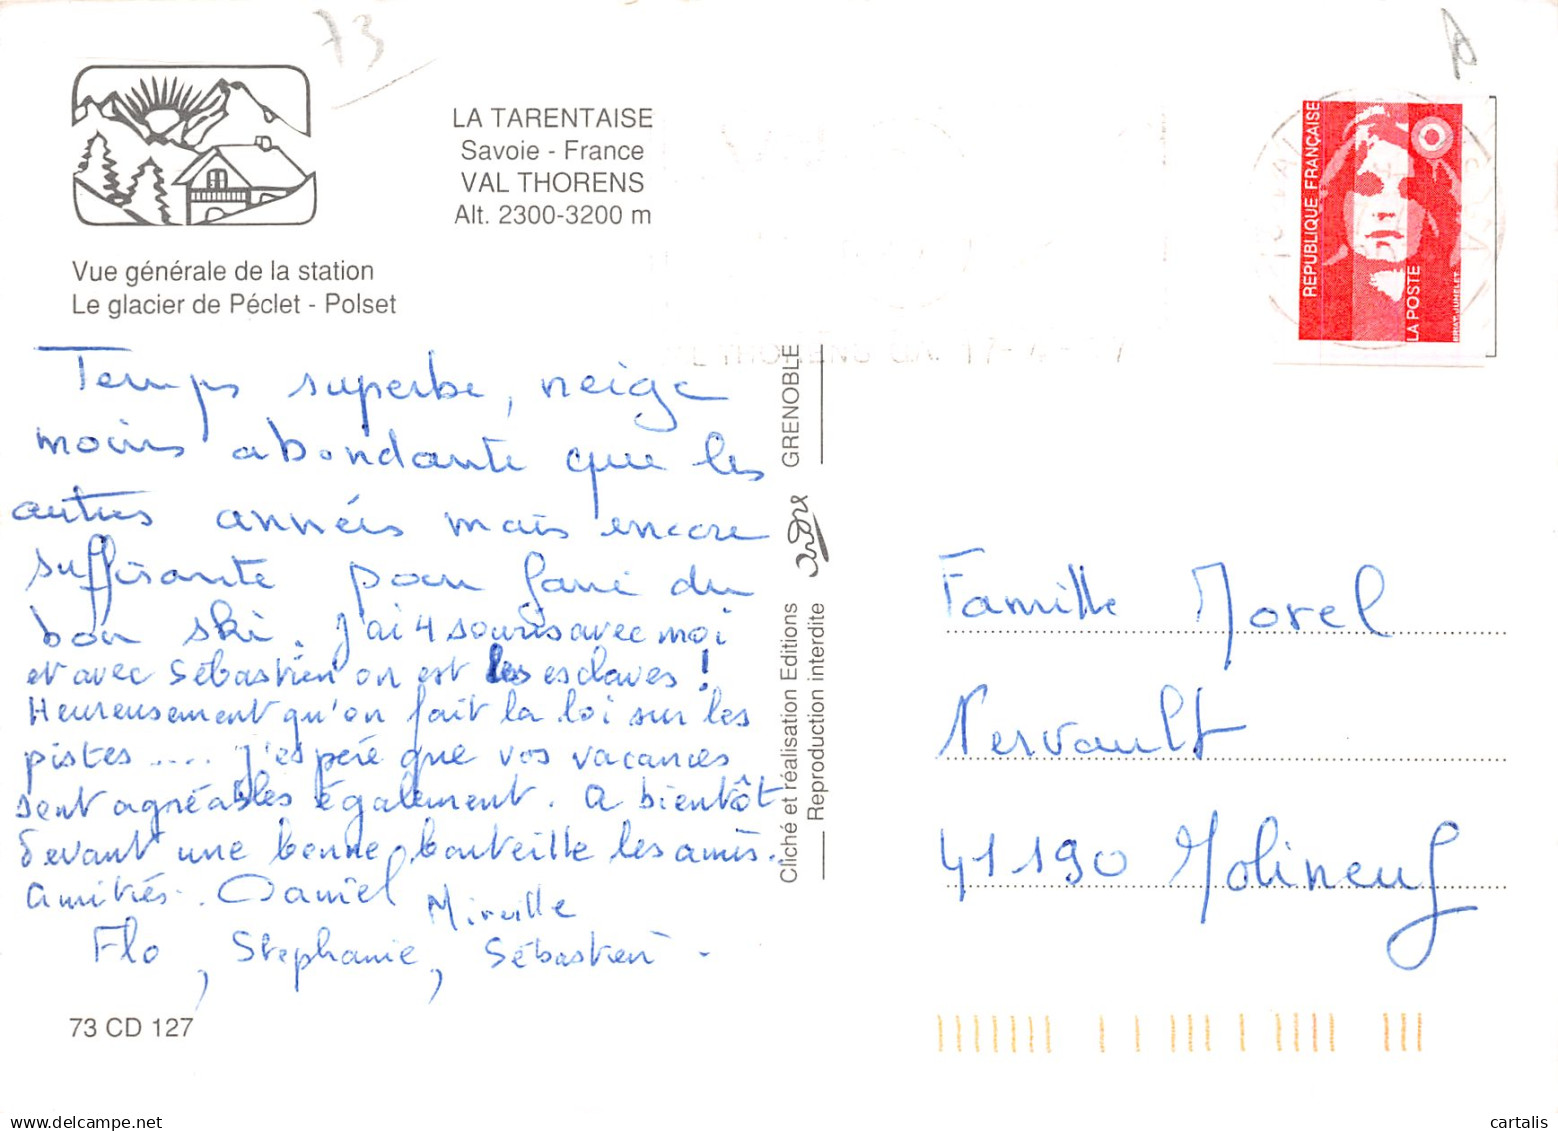 73
LA TARENTAISE
Savoie - France
VAL THORENS
Alt. 2300-3200 m
Vue générale de la station
Le glacier de Péclet - Polset
REPUBLIQUE FRANÇAISE
LA POSTE
Temps superbe, neige
moins abondante que les
autres années mais encore
suffisante pour faire du
bon ski. J'ai 4 souris avec moi
et avec Sébastien on est les esclaves !
Heureusement qu'on fait la loi sur les
pistes .... J'espère que vos vacances
sent agréables également. A bientôt
devant une bonne bouteille les amis.
Amitiés. Daniel
Mireille
Flo, Stephanie, Sébastien -
73 CD 127
GRENOBLE
Cliché et réalisation Editions
Reproduction interdite
Famille Morel
Nervault
41190 Molineuf
www.delcampe.net
cartalis